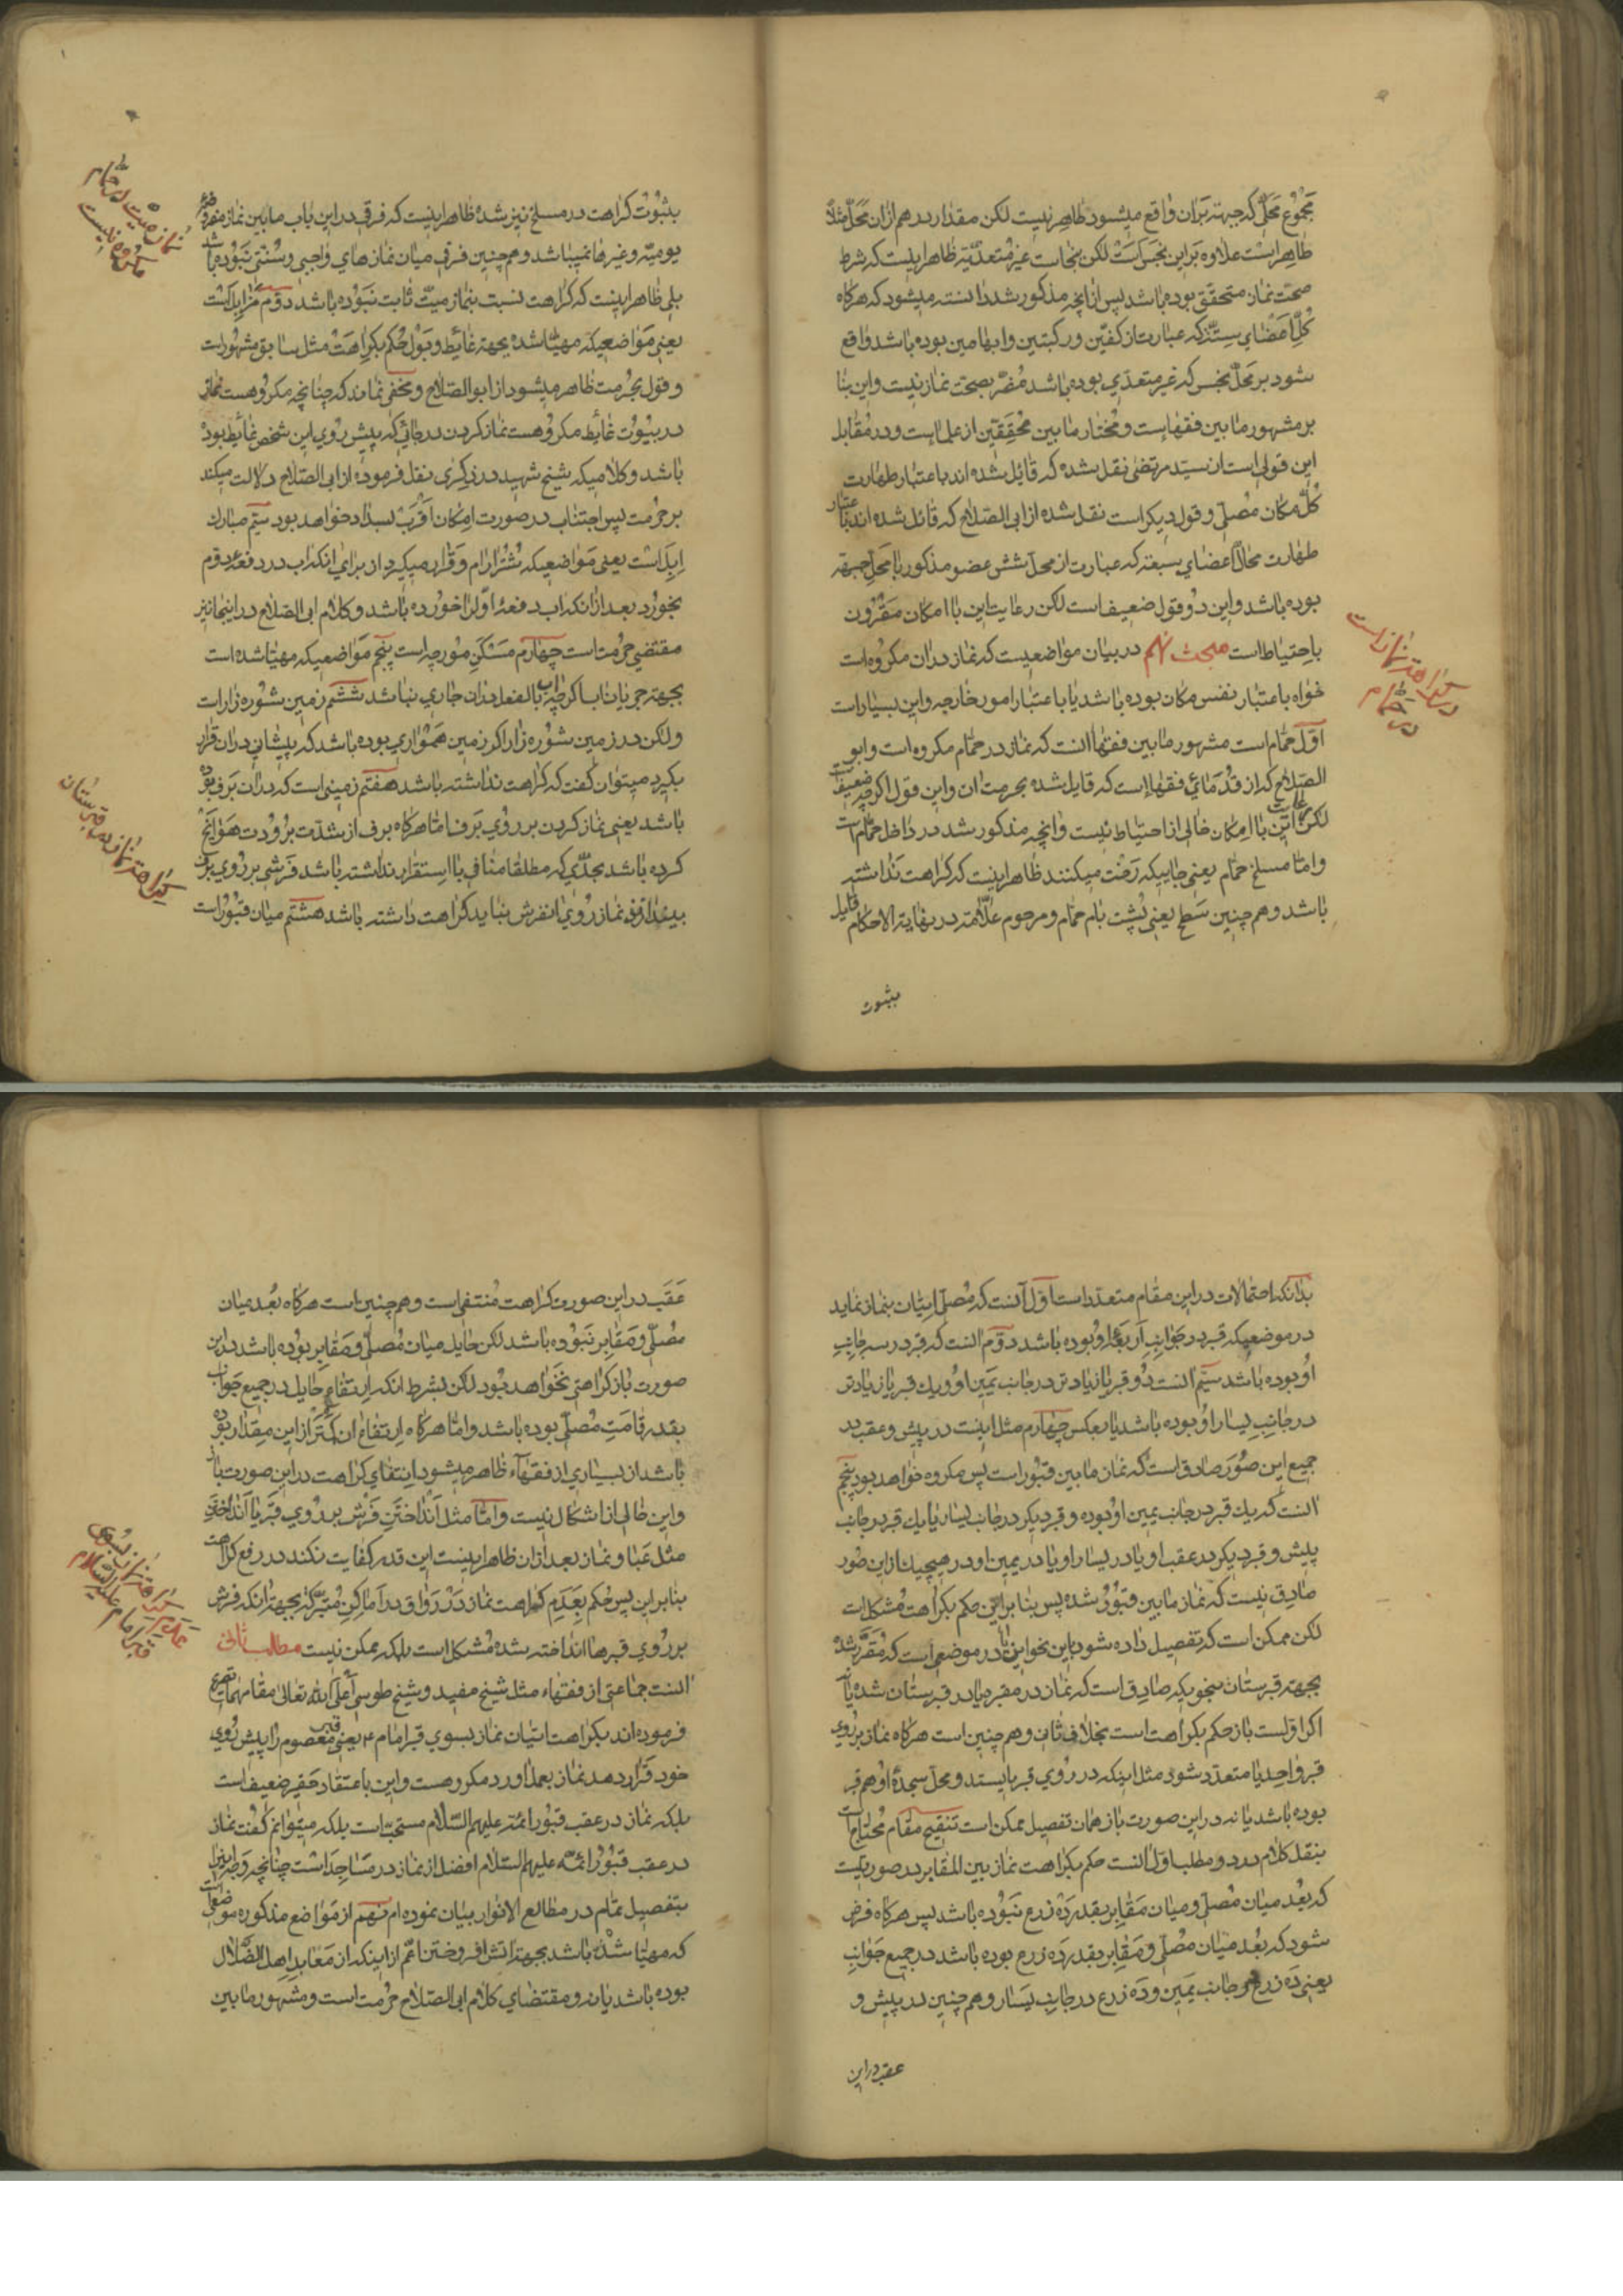 مجموع محلّی که جبهه بران واقع میشود طاهر نیست لکن مقدار درهم ازان محلّ مثلاً
طاهر است علاوه بر این نجس است لکن نجاست غیر متعدّیه ظاهر اینست که شرط
صحّت نماز متحقّق بوده باشد پس از انچه مذکور شد دانسته میشود که هرکاه
کلّ اعضای ستّه که عبارت از کفّین و رکبتین و ابهامین بوده باشد واقع
شود بر محلّ نجس که غیر متعدّی بوده باشد مضرّ بصحّت نماز نیست و این بنا
بر مشهور ما بین فقهاست و مختار ما بین محقّقین از علماست و در مقابل
این قولی است از سیّد مرتضی نقل شده که قائل شده اند باعتبار طهارت
کلّ مکان مصلّی و قول دیکر است نقل شده از ابی الصّلاح که قائل شده اند باعتبار
طهارت محالّ اعضای سبعه که عبارت از محلّ شش عضو مذکور با محلّ جبهه
بوده باشد و این دو قول ضعیف است لکن رعایت این با امکان مقرون
باحتیاط است مبحث نهم در بیان مواضعیست که نماز دران مکروه است
خواه باعتبار نفس مکان بوده باشد یا باعتبار امور خارجه و این بسیار است
اوّل حمّام است مشهور ما بین فقها انست که نماز در حمّام مکروه است و ابو
الصّلاح که از قدمای فقها است که قایل شده بحرمت ان و این قول اکرچه ضعیف است
لکن رعایت این با امکان خالی از احتیاط نیست و انچه مذکور شد در داخل حمّام است
و امّا مسلخ حمّام یعنی جاییکه رخت میکنند ظاهر اینست که کراهت نداشته
باشد و همچنین سطح یعنی پشت بام حمّام و مرحوم علّامه در نهایة الاحکام قایل
بثبوت
در کراهت نماز است
در حمّام
بثبوت کراهت در مسلخ نیز شده ظاهر اینست که فرقی در این باب ما بین نماز مفروضه
یومیّه و غیرها نمیباشد و همچنین فرقی میان نماز های واجبی و سنّتی نبوده باشد
بلی ظاهر اینست که کراهت نسبت بنماز میّت ثابت نبوده باشد دوّم مزابل است
یعنی مواضعیکه مهیّا شده بجهة غائط و بول حکم بکراهت مثل سابق مشهور است
و قول بحرمت ظاهر میشود از ابو الصّلاح و مخفی نماند که چنانچه مکروهست نماز
در بیوت غائط مکروهست نماز کردن در جائی که پیش روی این شخص غائط بوده
باشد و کلامیکه شیخ شهید در ذکری نقل فرموده از ابی الصّلاح دلالت میکند
بر حرمت پس اجتناب در صورت امکان اقرب بسداد خواهد بود سیّم مبارک
ابل است یعنی مواضعیکه شتر ارام و قرار میکیرد از برای انکه اب در دفعهٔ دوّم
بخورد بعد از انکه اب دفعهٔ اوّل را خورده باشد و کلام ابی الصّلاح در اینجا نیز
مقتضی حرمت است چهارم مسکن مورچه است پنجم مواضعیکه مهیّا شده است
بجهة جریان اب اکرچه اب بالفعل دران جاری نباشد ششم زمین شوره زار است
ولکن در زمین شوره زار اکر زمین همواری بوده باشد که پیشانی دران قرار
بکیرد میتوان کفت که کراهت نداشته باشد هفتم زمینی است که دران برف بوده
باشد یعنی نماز کردن بر روی برف امّا هرکاه برف از شدّت برودت هوا یخ
کرده باشد بحدّی که مطلقا منافی با استقرار نداشته باشد فرشی بر روی برف
بیندازند نماز روی انفرش نباید کراهت داشته باشد هشتم میان قبور است
نماز میّت در حمّام
مکروه نیست
کراهت نماز در قبرستان
بدانکه احتمالات در این مقام متعدّد است اوّل آنست که مصلّی اتیان بنماز نماید
در موضعیکه قبر در جوانب اربعهٔ او بوده باشد دوّم انست که قبر در سه جانب
او بوده باشد سیّم انست دو قبر یا زیادتر در جانب یمین او و یک قبر یا زیادتر
در جانب یسار او بوده باشد یا بعکس چهارم مثل اینست در پیش و عقب در
جمیع این صور صادق است که نماز ما بین قبور است پس مکروه خواهد بود پنجم
انست که یک قبر در جانب یمین او بوده و قبر دیکر در جانب یسار یا یک قبر در جانب
پیش و قبر دیکر در عقب او یا در یسار او یا در یمین او در هیچیک از این صور
صادق نیست که نماز ما بین قبور شده پس بنا بر این حکم بکراهت مشکل است
لکن ممکن است که تفصیل داده شود باین نحو این یا در موضعی است که مقرّر شده
بجهة قبرستان بنحویکه صادق است که نماز در مقبره یا در قبرستان شده یا نه
اکر اوّلست باز حکم بکراهت است بخلاف ثانی و همچنین است هرکاه نماز بر روی
قبر واحد یا متعدّد شود مثل اینکه در روی قبر بایستد و محلّ سجدهٔ او هم قبر
بوده باشد یا نه در این صورت باز همان تفصیل ممکن است تنقیح مقام محتاج است
بنقل کلام در دو مطلب اوّل انست حکم بکراهت نماز بین المقابر در صورتیست
که بعد میان مصلّی و میان مقابر بقدر ده زرع نبوده باشد پس هرکاه فرض
شود که بعد میان مصلّی و مقابر بقدر ده زرع بوده باشد در جمیع جوانب
یعنی ده زرع در جانب یمین و ده زرع در جانب یسار و همچنین در پیش و
عقب در این
عقب در این صورت کراهت منتفی است و همچنین است هرکاه بعد میان
مصلّی و مقابر نبوده باشد لکن حایل میان مصلّی و مقابر بوده باشد در این
صورت باز کراهتی نخواهد بود لکن بشرط انکه ارتفاع حایل در جمیع جوانب
بقدر قامت مصلّی بوده باشد و امّا هرکاه ارتفاع ان کمتر از این مقدار بوده
باشد از بسیاری از فقهاء ظاهر میشود انتفای کراهت در این صورت باز
و این خالی از اشکال نیست و امّا مثل انداختن فرش بر روی قبر یا انداختن
مثل عبا و نماز بعد ازان ظاهر اینست این قدر کفایت نکند در رفع کراهت
بنا بر این پس حکم بعدم کراهت نماز در رواق در اماکن متبرّکه بجهة انکه فرش
بر روی قبرها انداخته شده مشکل است بلکه ممکن نیست مطلب ثانی
انست جماعتی از فقهاء مثل شیخ مفید و شیخ طوسی اعلی الله تعالی مقامهما تصریح
فرموده اند بکراهت اتیان نماز بسوی قبر امام ع یعنی قبر معصوم را پیش روی
خود قرار دهد نماز بعمل اورد مکروهست و این باعتقاد حقیر ضعیف است
بلکه نماز در عقب قبور ائمّه علیهم السّلام مستحبّ است بلکه میتوانم کفت نماز
در عقب قبور ائمّه علیهم السّلام افضل از نماز در مساجد است چنانچه وجه اینرا
بتفصیل تمام در مطالع الانوار بیان نموده ام نهم از مواضع مذکوره موضعی است
که مهیّا شده باشد بجهة اتش افروختن اعمّ از اینکه از معابد اهل الضّلال
بوده باشد یا نه و مقتضای کلام ابی الصّلاح حرمت است و مشهور ما بین
عدم کراهت نماز بسوی
قبر امام علیه السّلام